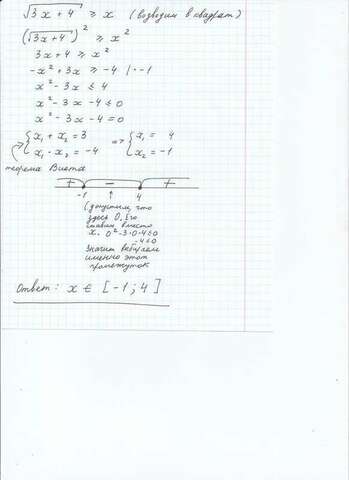 √3x+4 ≥ x (возводим в квадрат)
(√3x+4)² ≥ x²
3x+4 ≥ x²
-x²+3x ≥ -4 | · -1
x²-3x ≤ 4
x²-3x-4 ≤ 0
x²-3x-4=0
{x₁+x₂=3 => {x₁=4
{x₁·x₂=-4 {x₂=-1
теорема Виета
+ - +
-1 ↑ 4
(допустим, что
здесь 0. Его
ставим вместо
x. 0²-3·0-4≤0
-4≤0
Значит выбираем
именно этот
промежуток
Ответ: x ∈ [-1;4]